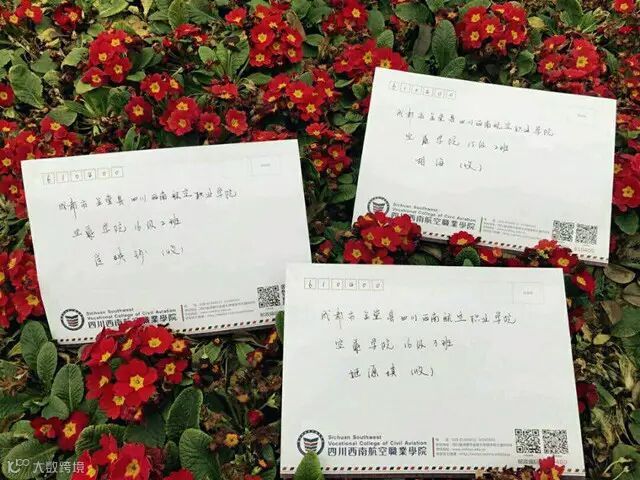 610400
成都市金堂县四川西南航空职业学院
空乘学院 15级2班
胡海 (收)
Sichuan Southwest
Vocational College of Civil Aviation
四川西南航空職業學院
610400
610400
成都市金堂县四川西南航空职业学院
空乘学院 16级2班
(收)
Sichuan Southwest
Vocational College of Civil Aviation
四川西南航空職業學院
610400
成都市金堂县四川西南航空职业学院
空乘学院 16级3班
(收)
Sichuan Southwest
Vocational College of Civil Aviation
四川西南航空職業學院
大数跨境